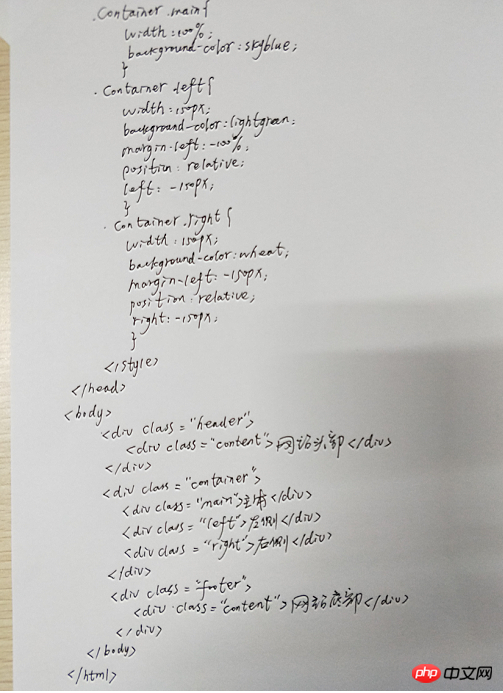 .Container .main{
width:100%;
background-color:skyblue;
}
.Container .left{
width:150px;
background-color:lightgreen;
margin-left:-100%;
position:relative;
left:-150px;
}
.Container .right{
width:150px;
background-color:wheat;
margin-left:-150px;
position:relative;
right:-150px;
}
</style>
</head>
<body>
<div class="header">
<div class="content">网站头部</div>
</div>
<div class="container">
<div class="main">主体</div>
<div class="left">左侧</div>
<div class="right">右侧</div>
</div>
<div class="footer">
<div class="content">网站底部</div>
</div>
</body>
</html>
php中文网